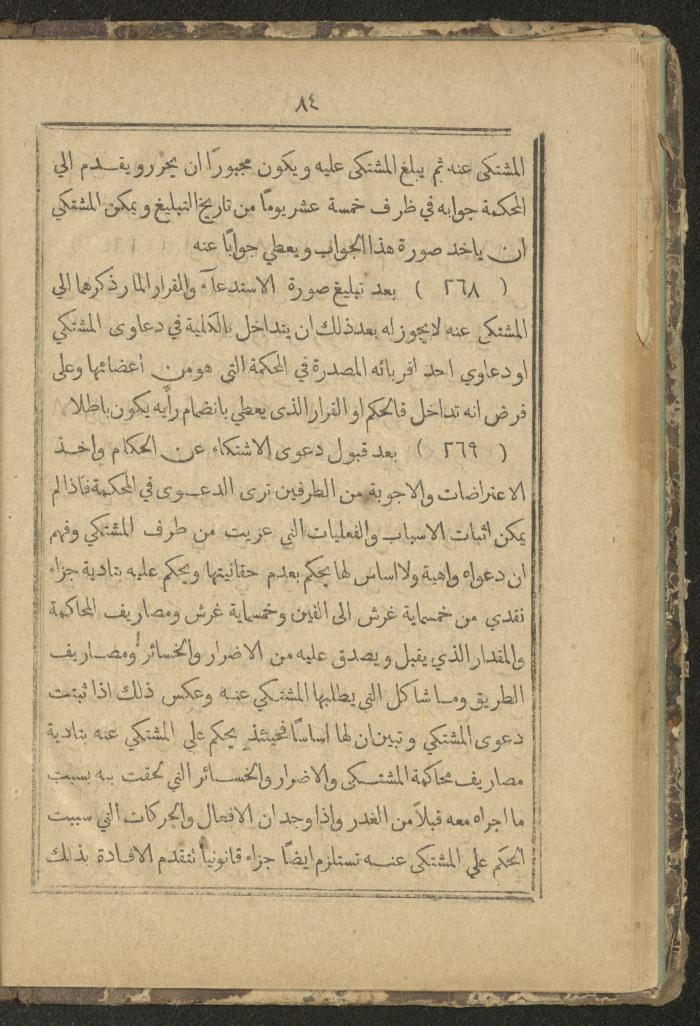 ٨٤
المشتكى عنه ثم يبلغ المشتكى عليه ويكون مجبورًا ان يحرر ويقدم الي
المحكمة جوابه في ظرف خمسة عشر يومًا من تاريخ التبليغ ويمكن المشتكي
ان ياخد صورة هذا الجواب ويعطي جوابًا عنه
( ٢٦٨ ) بعد تبليغ صورة الاستدعآء والقرار المار ذكرهما الي
المشتكى عنه لا يجوز له بعد ذلك ان يتداخل بالكلية في دعاوى المشتكي
او دعاوي احد اقربائه المصدرة في المحكمة التي هو من اعضائها وعلى
فرض انه تداخل فالحكم او القرار الذى يعطي بانضمام رأيه يكون باطلا
( ٢٦٩ ) بعد قبول دعوى الاشتكاء عن الحكام واخذ
الاعتراضات والاجوبة من الطرفين ترى الدعوى في المحكمة فاذا لم
يمكن اثبات الاسباب والفعليات التي عزيت من طرف المشتكي وفهم
ان دعواه واهية ولا اساس لها يحكم بعدم حقانيتها ويحكم عليه بتادية جزاء
نقدي من خمسماية غرش الى الفين وخمسماية غرش ومصاريف المحاكمة
والمقدار الذي يقبل ويصدق عليه من الاضرار والخسائر ومصاريف
الطريق وما شاكل التي يطلبها المشتكي عنه وعكس ذلك اذا ثبتت
دعوى المشتكي وتبين ان لها اساسًا فحينئذ يحكم علي المشتكي عنه بتادية
مصاريف محاكمة المشتكى والاضرار والخسائر التي لحقت به بسبب
ما اجراه معه قبلاً من الغدر واذا وجد ان الافعال والحركات التي سببت
الحكم علي المشتكي عنه تستلزم ايضًا جزاء قانونيًا تتقدم الافادة بذلك